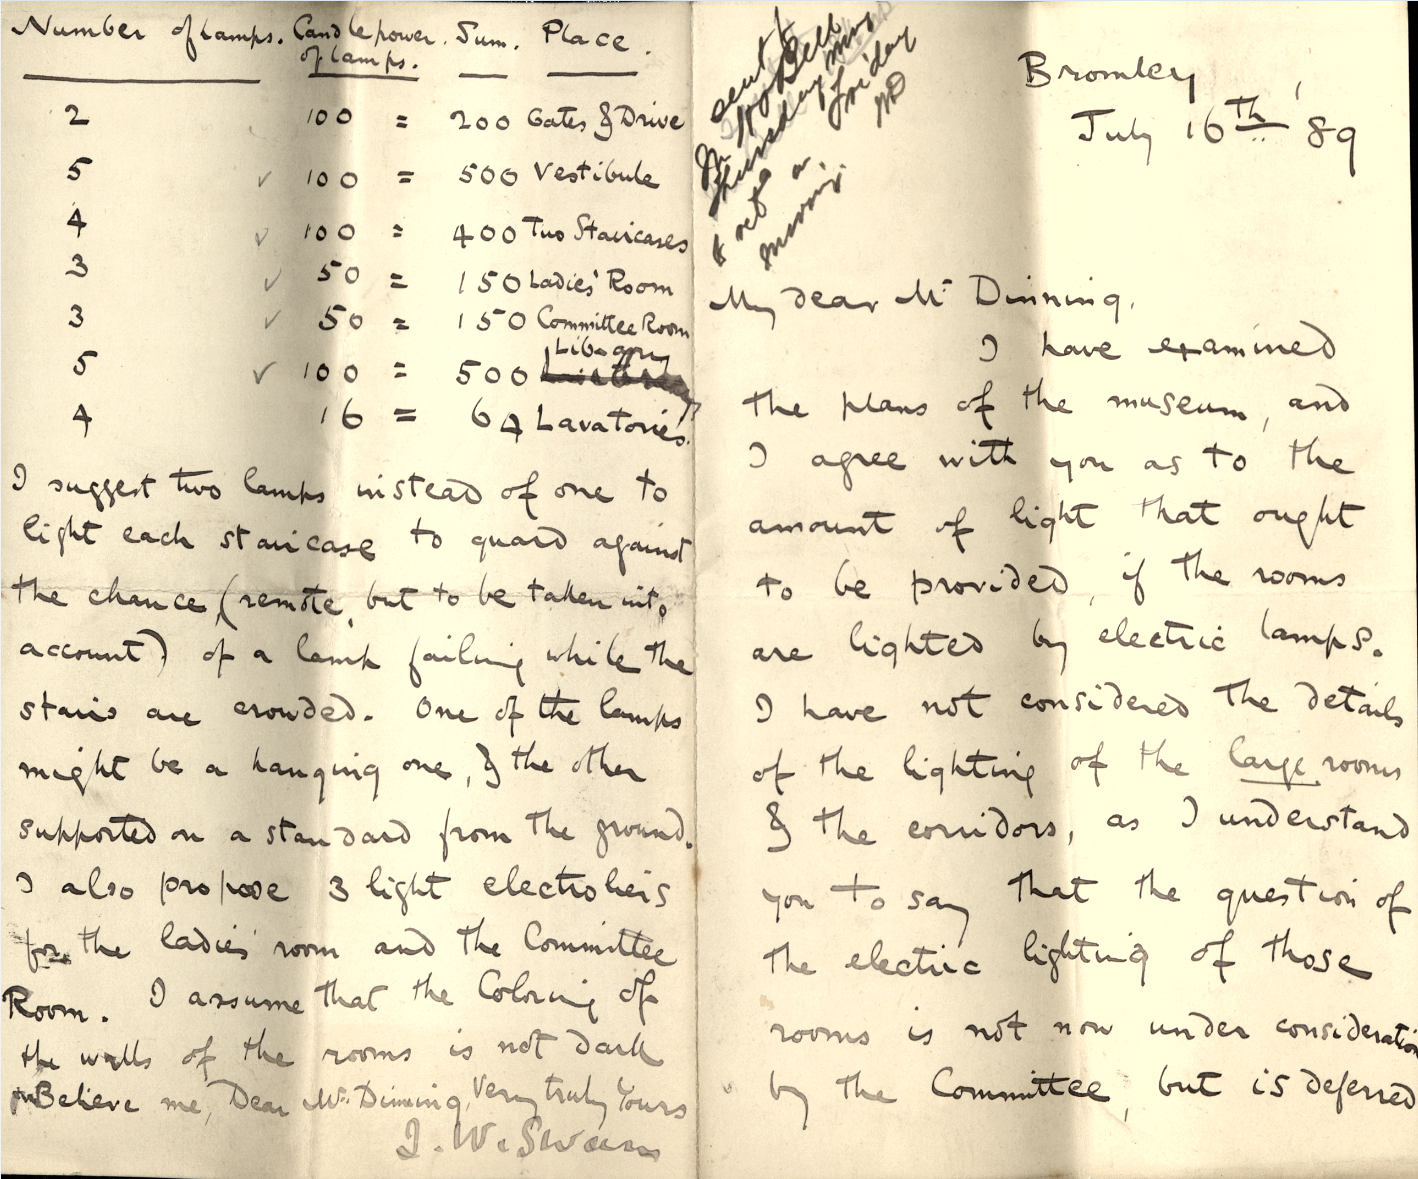 Bromley
July 16th '89
sent to
Bell
Thursday
Friday
morning.
My dear Mr Dinning,
I have examined
the plans of the museum, and
I agree with you as to the
amount of light that ought
to be provided, if the rooms
are lighted by electric lamps.
I have not considered the details
of the lighting of the large rooms
& the corridors, as I understand
you to say that the question of
the electric lighting of those
rooms is not now under consideration
by the Committee, but is deferred
Number of lamps. Candle power of lamps. Sum. Place.
2 100 = 200 Gates & Drive
5 100 = 500 Vestibule
4 100 = 400 Two Staircases
3 50 = 150 Ladies' Room
3 50 = 150 Committee Room
5 100 = 500 Library
4 16 = 64 Lavatories.
I suggest two lamps instead of one to
light each staircase to guard against
the chance (remote, but to be taken into
account) of a lamp failing while the
stairs are crowded. One of the lamps
might be a hanging one, & the other
supported on a standard from the ground.
I also propose 3 light electroliers
for the ladies' room and the Committee
Room. I assume that the Coloring of
the walls of the rooms is not dark
Believe me, Dear Mr Dinning, Very truly Yours
J. W. Swan